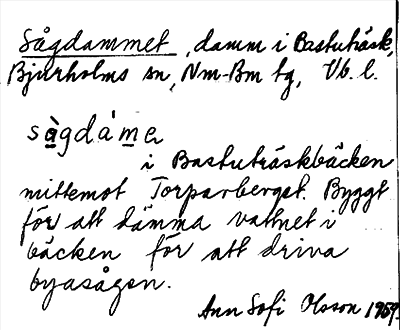 Sågdammet, damm i Bastuträsk,
Bjurholms sn, Nm-Bm tg, Vb. l.
sàgdám̲e
i Bastuträskbäcken
mittemot Torparberget. Byggt
för att dämma vattnet i
bäcken för att driva
byasågen.
Ann Sofi Olsson 1959.